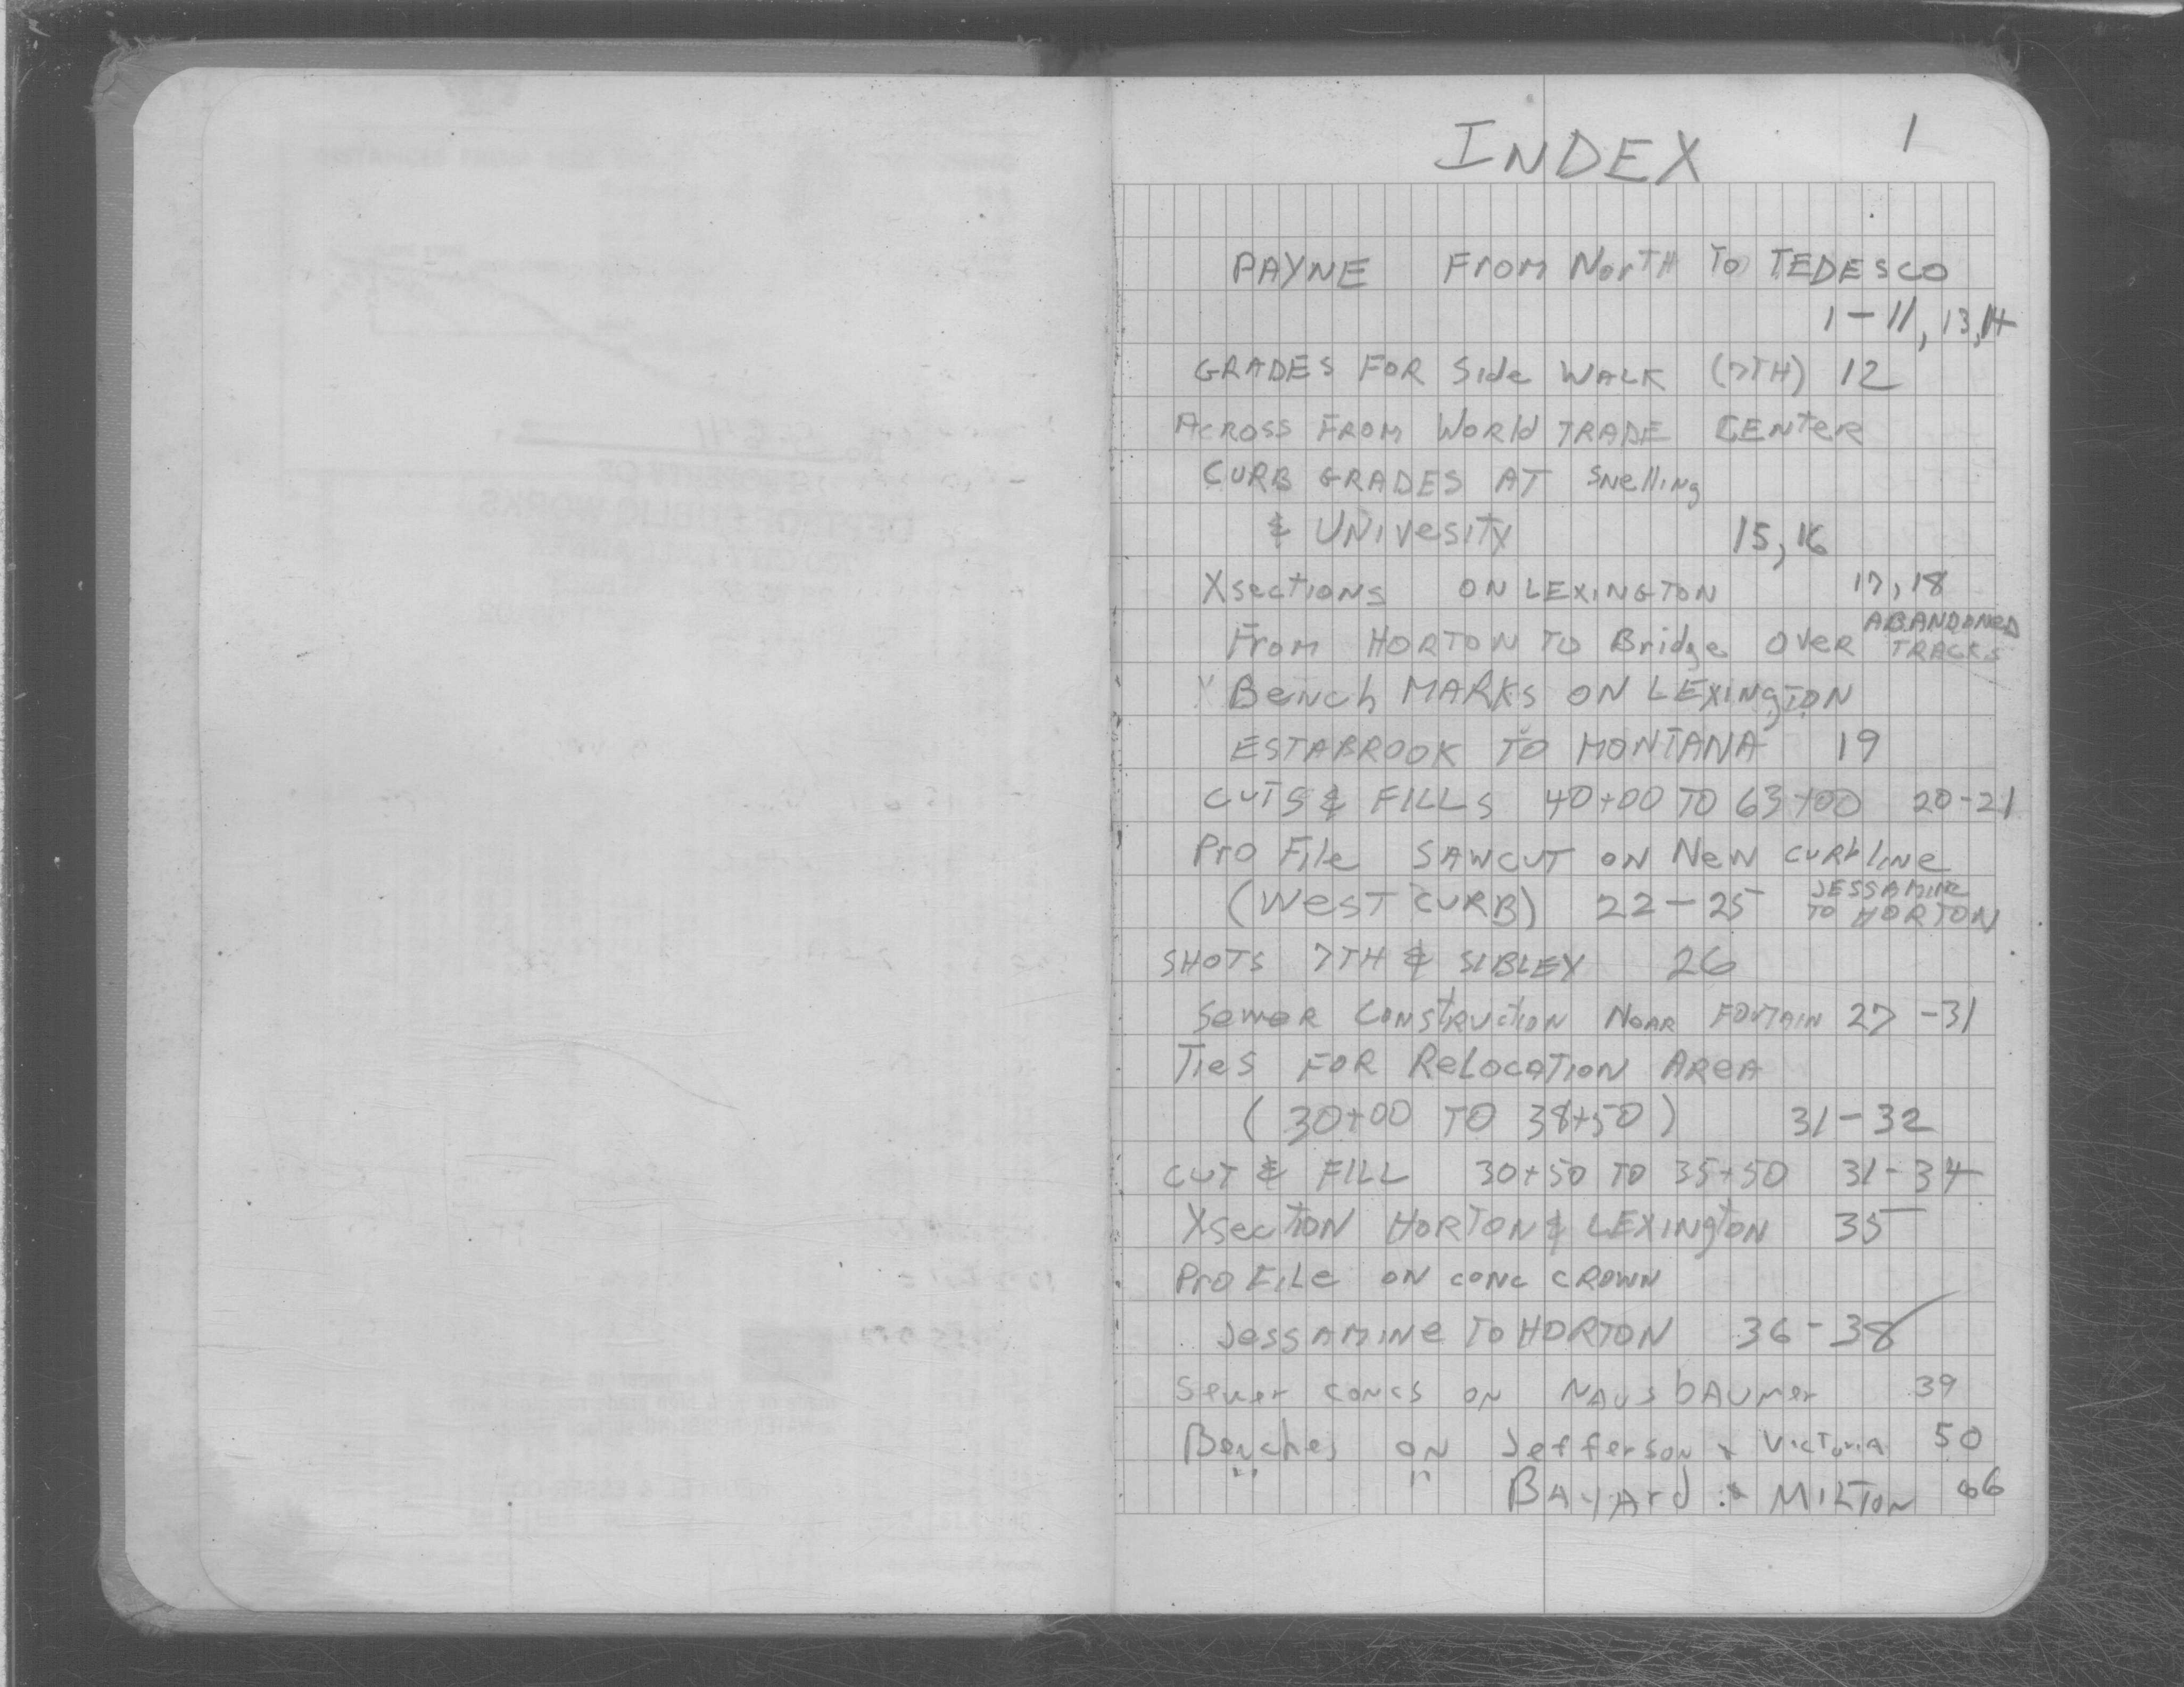 INDEX 1
PAYNE From NorTH To TEDESCO
1-11, 13, 14
GRADES FOR Side WALK (7TH) 12
Across From World TRADE CENTER
CURB GRADES AT Snelling
& UNIVesiTy 15, 16
Xsections ON LEXINGTON 17, 18
From HORTON TO Bridge Over ABANDONED TRACKS
Bench MARKS ON LEXINgTON
ESTABROOK TO MONTANA 19
CUTS & FILLS 40+00 TO 63+00 20-21
ProFile SAWCUT ON New CURbline
(WesT CURB) 22-25 JESSAMINE TO HORTON
SHOTS 7TH & SIBLEY 26
Sewer Construction Near 27-31
Ties FOR ReLocaTion AreA
(30+00 TO 38+50) 31-32
CUT & FILL 30+50 TO 35+50 31-34
Xsection HORTON & LEXINgTON 35
ProFile ON CONC CROWN
JessAMINe TO HORTON 36-38
Sewer concs on NAUsbAUmer 39
Benches on Jefferson & Victoria 50
" " BAyArd & MILTON 66